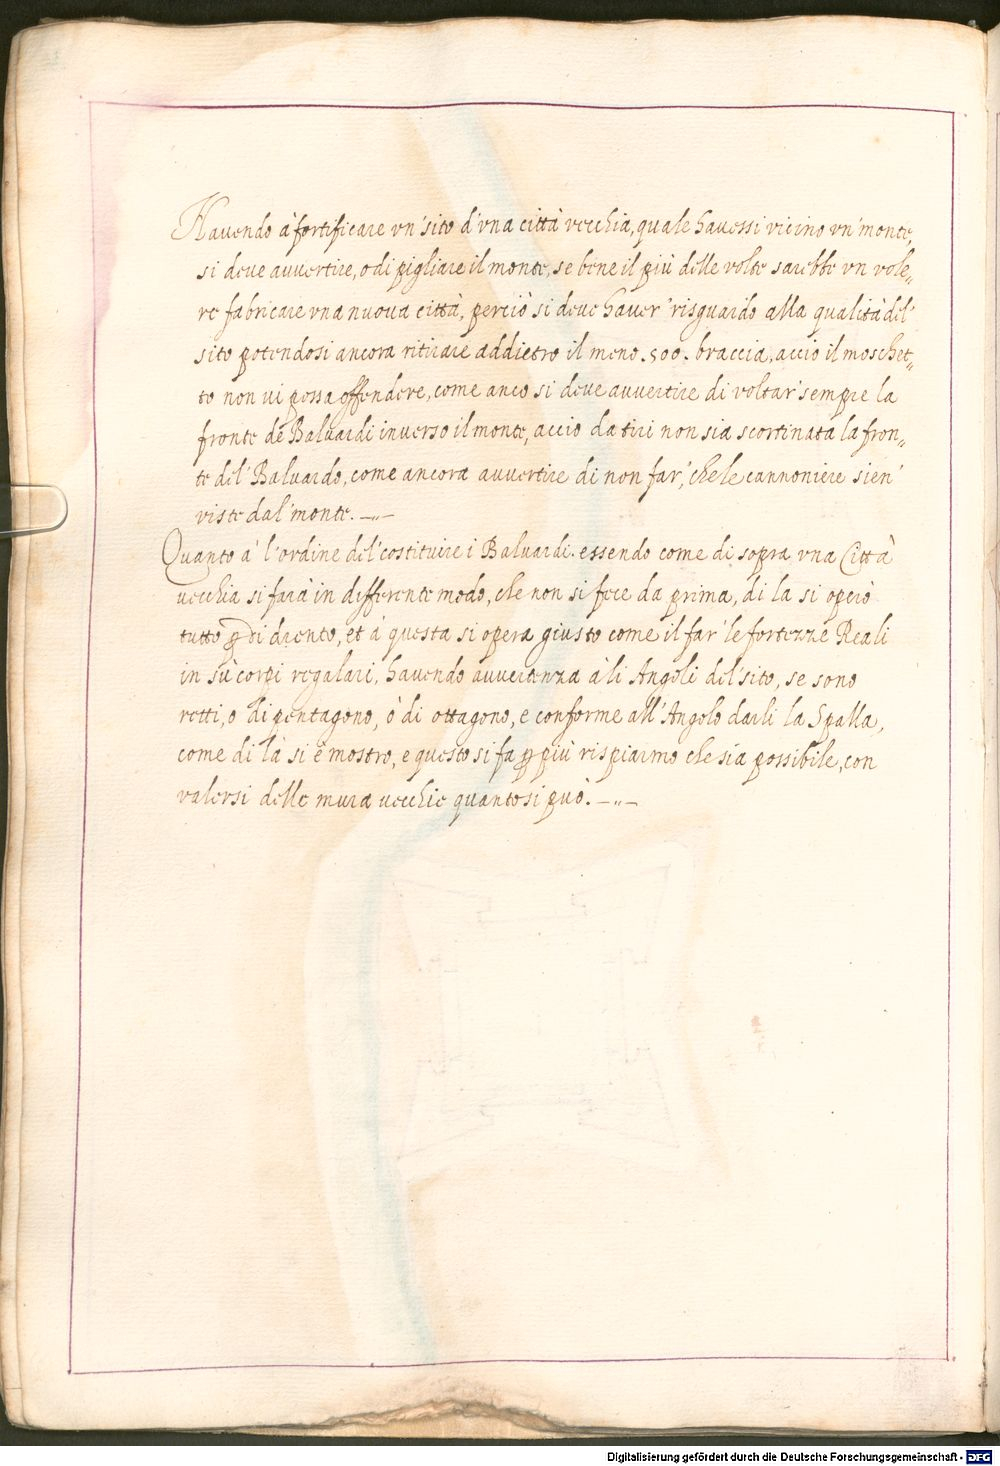 Havendo à fortificare vn' sito d'vna città vecchia, quale havessi vicino vn' monte,
si deve avvertire, o di pigliare il monte, se bene il più delle volte sarebbe vn vole„
re fabricare vna nuova città, perciò si deve haver' risguardo alla qualità del'
sito potendosi ancora ritirare addietro il meno .500. braccia, accio il moschet„
to non vi possa offendere, come anco si deve avvertire di voltar' sempre la
fronte dè Baluardi inverso il monte, accio da tiri non sia scortinata la fron„
te del' Baluardo, come ancora avvertire di non far', che le cannoniere sien'
viste dal' monte. —„—
Quanto à l'ordine del' costituire i Baluardi. essendo come di sopra vna Città
vecchia si farà in differente modo, che non si fece da prima, di la si operò
tutto p di drento, et à questa si opera giusto come il far' le fortezze Reali
in sù corpi regalari, havendo avvertenza à li Angoli del' sito, se sono
retti, o di pentagono, ò di ottagono, e conforme all' Angolo darli la Spalla,
come di là si è mostro, e questo si fa p più rispiarmo che sia possibile, con
valersi delle mura vecchie quanto si può. —„—
Digitalisierung gefördert durch die Deutsche Forschungsgemeinschaft - DFG